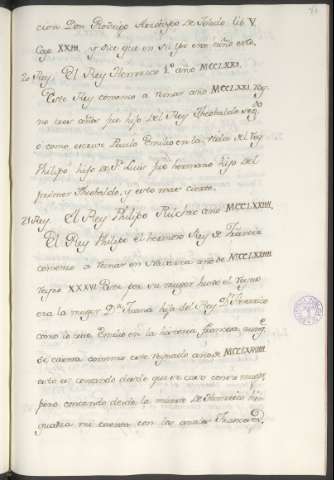 cion Don Rodrigo Arzobispo de Toledo lib V
Cap. XXIII. y dice que en su yer era este.
20 Rey. El Rey Henrrico 1.º año MCCLXXI.
Este Rey comenzo a reinar año MCCLXXI. Rey-
no tres años fue hijo del Rey Theobaldo seg.do
o como escrive Paulo Emilio en la vida del Rey
Philipo hijo de S.n Luis fue hermano hijo del
primer Theobaldo, y esto mas cierto.
21 Rey. El Rey Philipo Pulchro año MCCLXXIIII.
El Rey Philipo el hermoso Rey de Francia
comenzo a Reinar en Navarra año de MCCLXXIIII.
Reyno XXXVI. Parte por su muger huvo el Reyno
era la muger D.ª Juana hija del Rey D.n Henrrico
como lo dice Emilio en la historia francesa, aunq.e
se cuenta comienzo este Reynado año de
esto es contando desde que se caso con su muger,
pero contando desde la muerte de Henrrico
mi cuenta con los anales